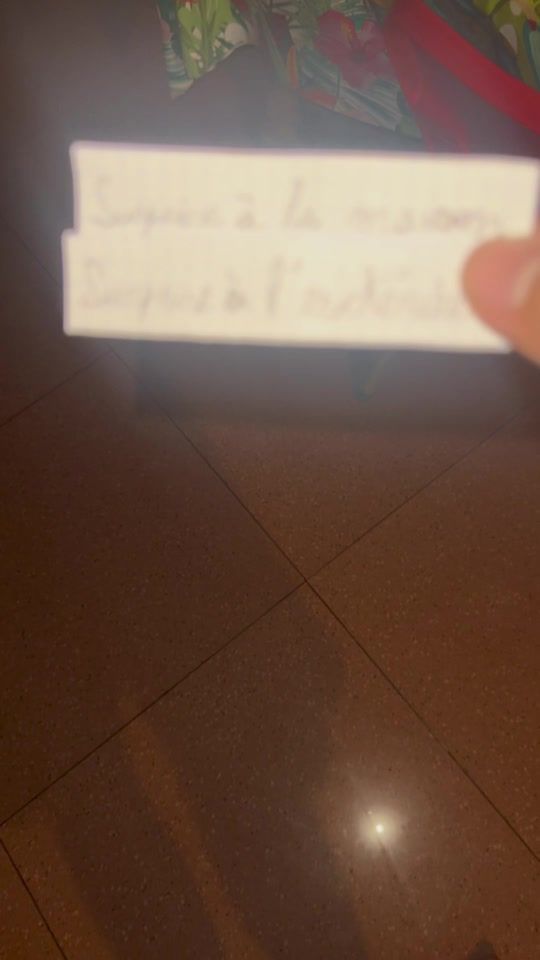 Surprise à la maison
Surprise à l'